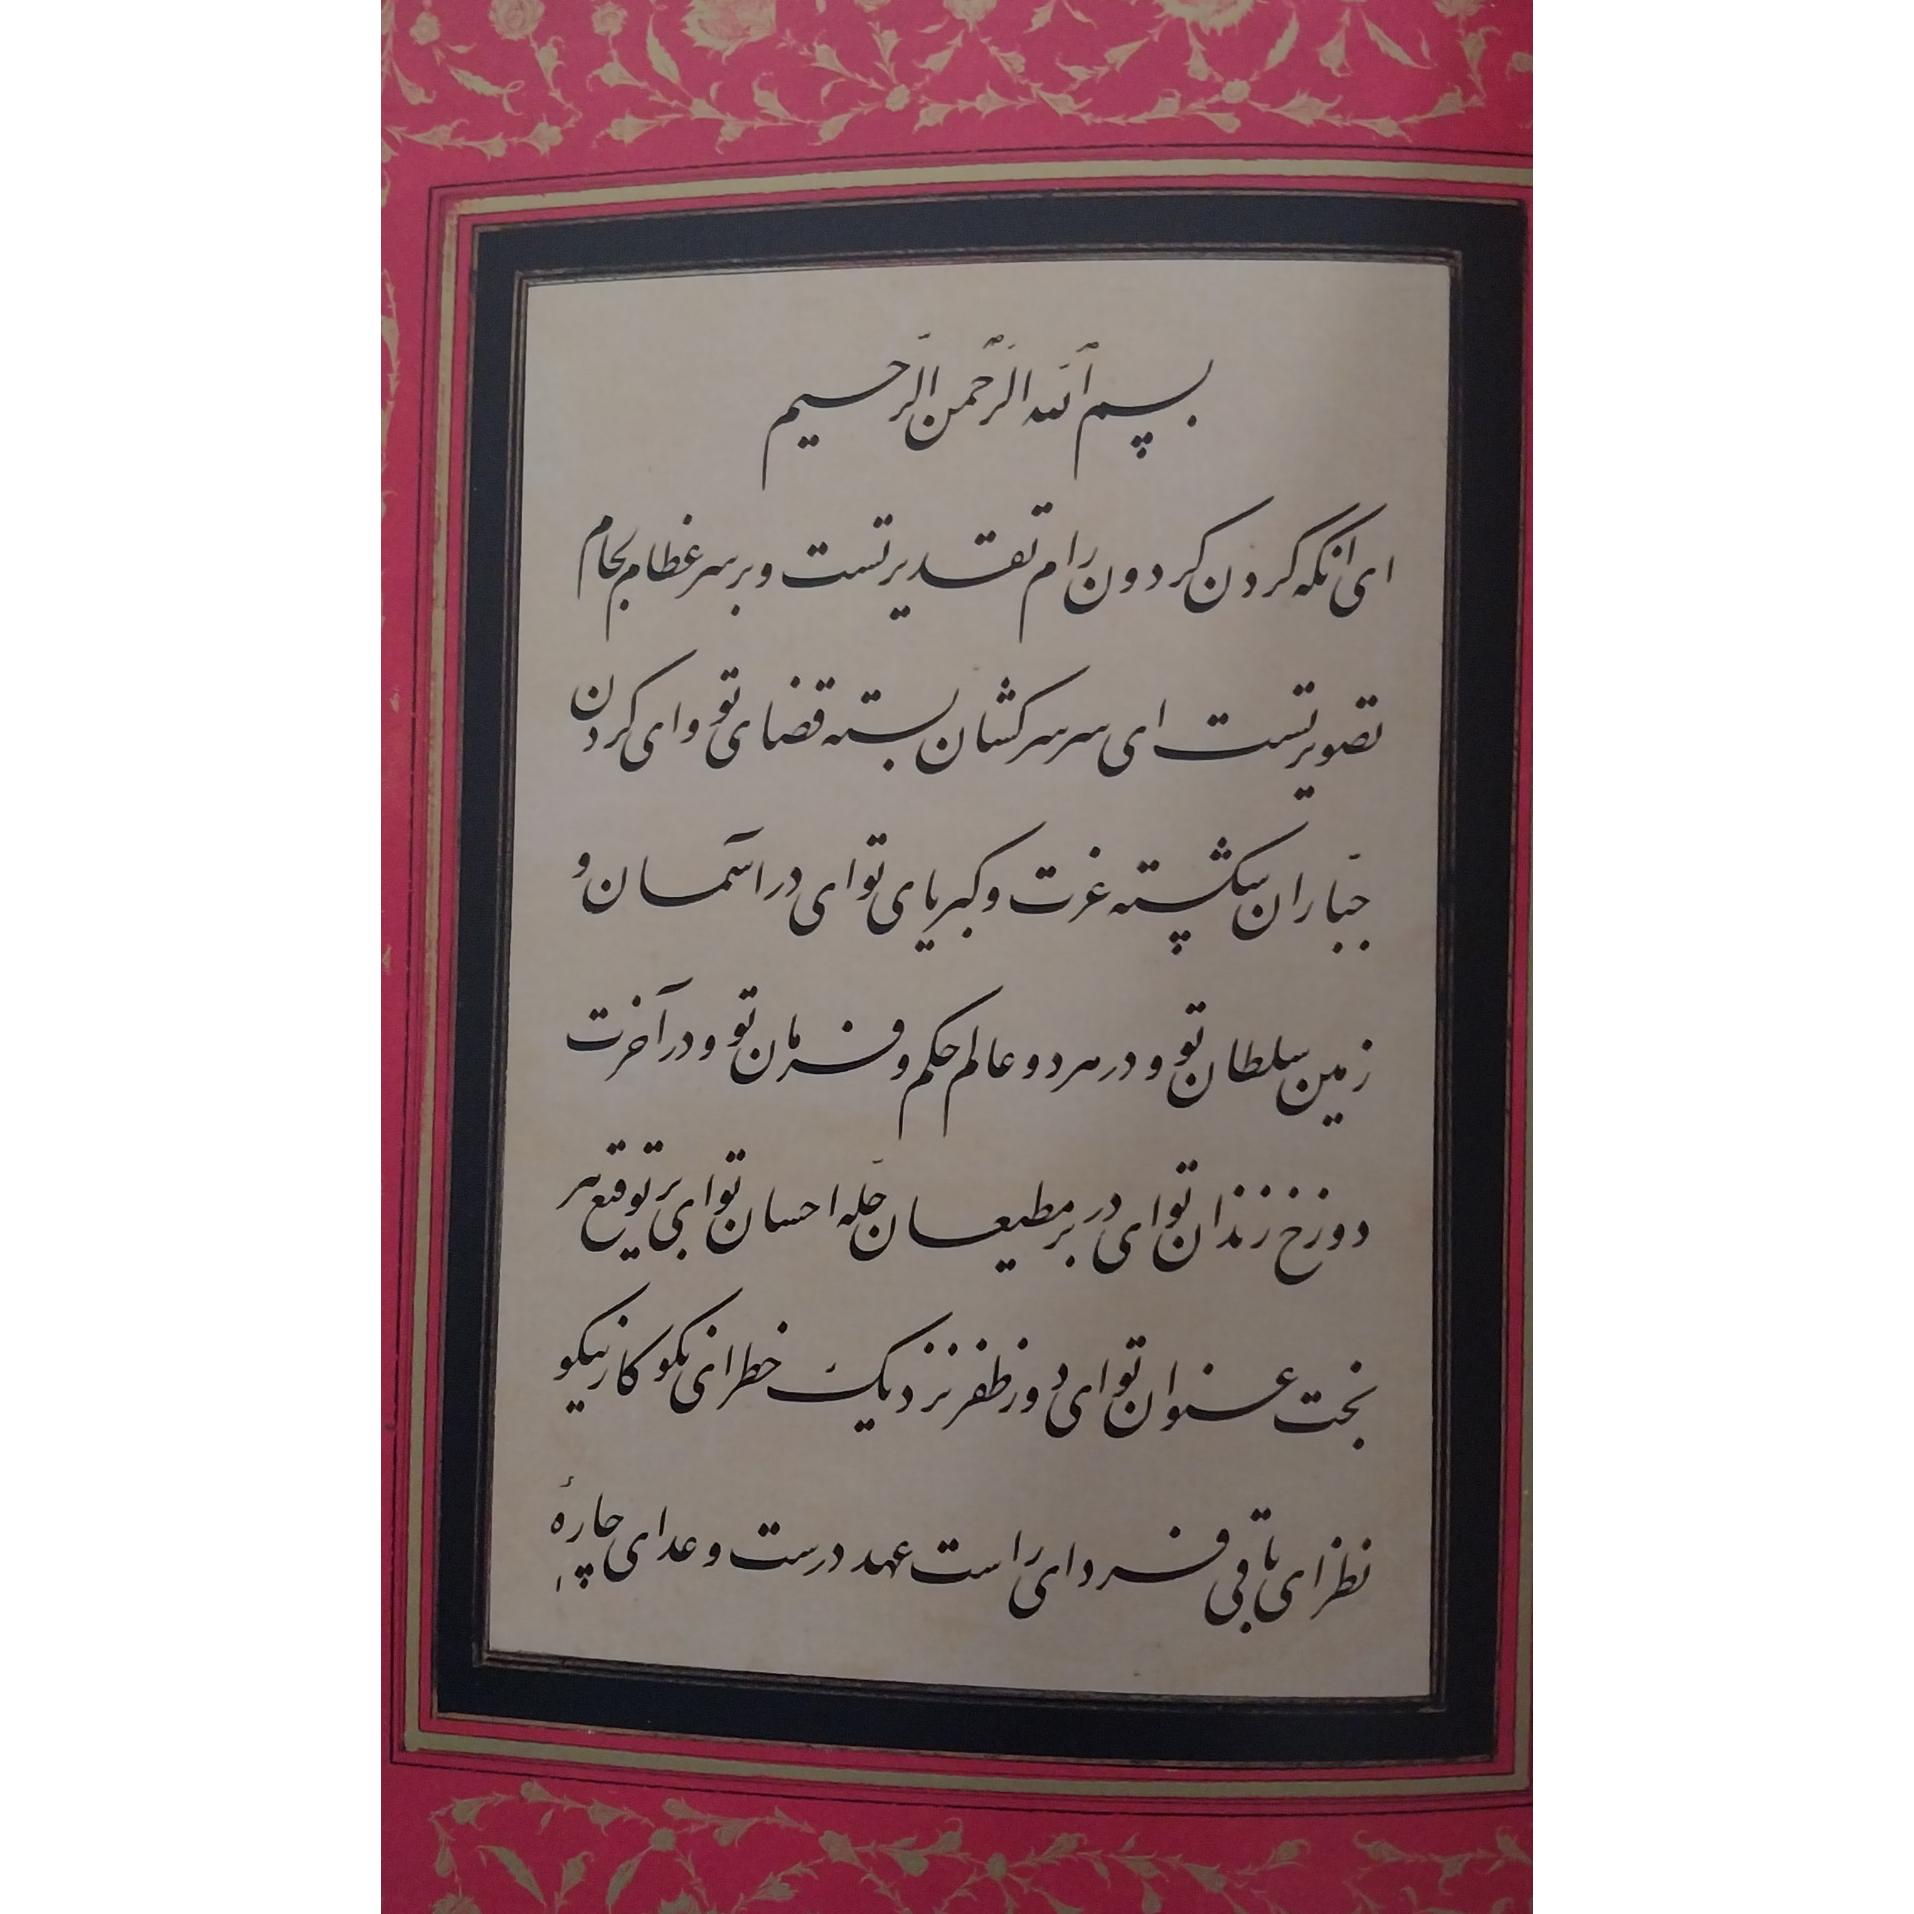 بسم الله الرّحمن الرّحیم
ای آنکه کردن کردون رام تقدیر تست و بر سر عظام لجام
تصویر تست ای سر سرکشان بسته قضای تو و ای کردن
جبّاران شکسته عزت و کبریای تو ای در آسمان و
زمین سلطان تو و در هر دو عالم حکم و فرمان تو و در آخرت
دوزخ زندان تو ای در بر مطیعان حلّه احسان تو ای بر توقیع هر
بخت عنوان تو ای دور ظفر نزدیک خطر ای نکو کار نیکو
نظر ای باقی فرد ای راست عهد درست وعد ای چارهٔ